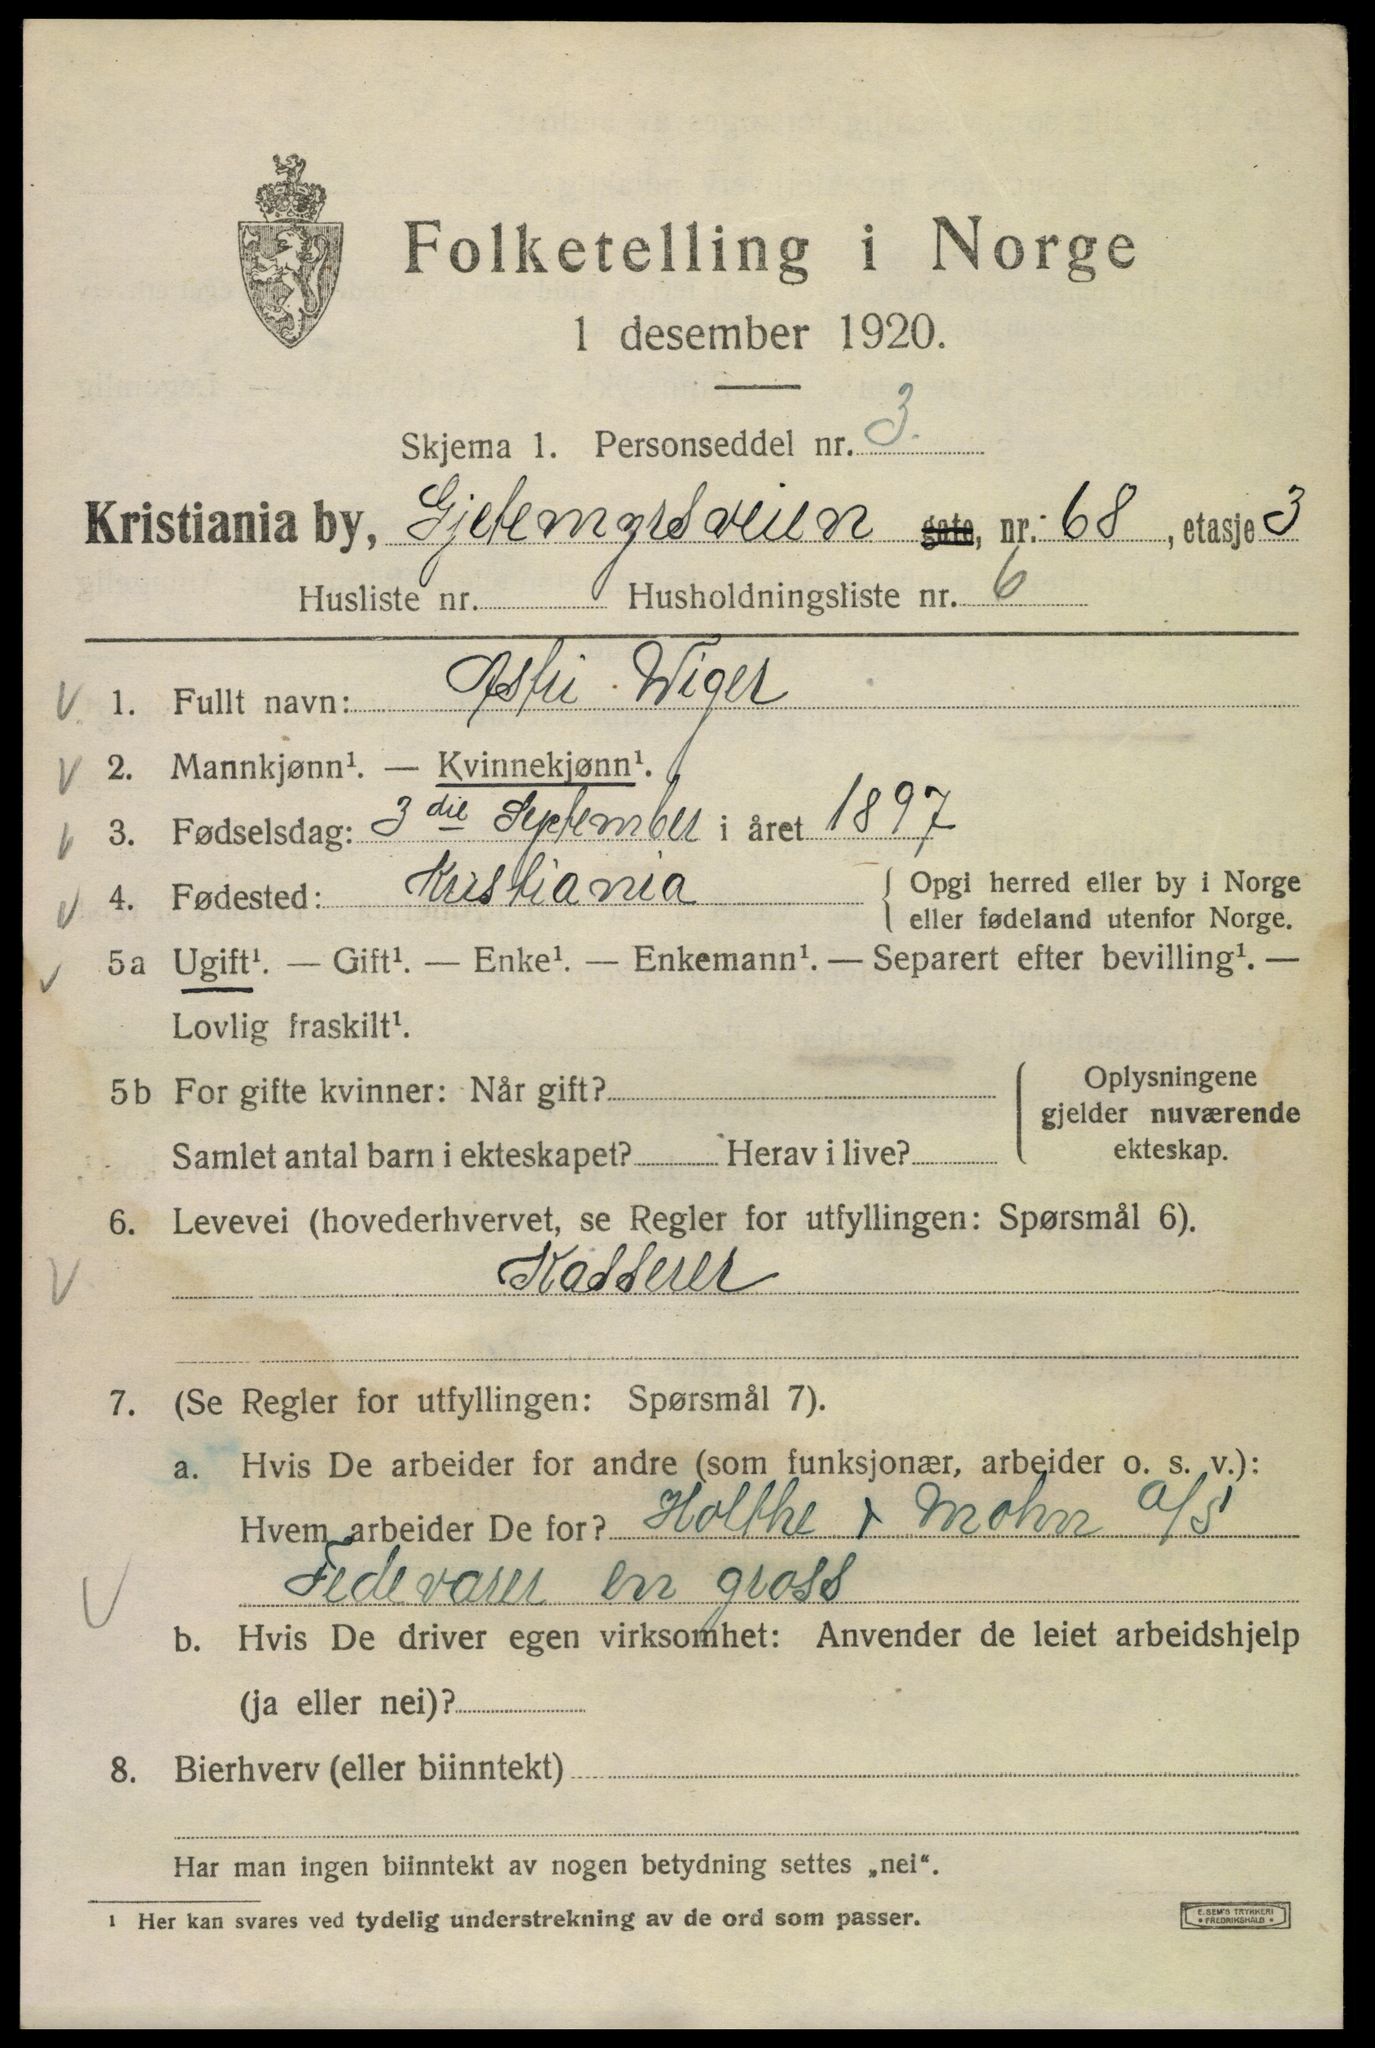 Folketelling i Norge
1 desember 1920.
Skjema 1. Personseddel nr. 3.
Kristiania by, Gjetemyrsveien gate, nr. 68, etasje 3
Husliste nr. Husholdningsliste nr. 6
1. Fullt navn: Astri Wiger
2. Mannkjønn¹. — Kvinnekjønn¹.
3. Fødselsdag: 3 die September i året 1897
4. Fødested: Kristiania { Opgi herred eller by i Norge
eller fødeland utenfor Norge.
5a Ugift¹. — Gift¹. — Enke¹. — Enkemann¹. — Separert efter bevilling¹. —
Lovlig fraskilt¹.
5b For gifte kvinner: Når gift?
Samlet antal barn i ekteskapet? Herav i live?
Oplysningene
gjelder nuværende
ekteskap.
6. Levevei (hovederhvervet, se Regler for utfyllingen: Spørsmål 6).
Kasserer
7. (Se Regler for utfyllingen: Spørsmål 7).
a. Hvis De arbeider for andre (som funksjonær, arbeider o. s. v.):
Hvem arbeider De for? Holthe & Mohn A/S
Fedevarer en gross
b. Hvis De driver egen virksomhet: Anvender de leiet arbeidshjelp
(ja eller nei)?
8. Bierhverv (eller biinntekt)
Har man ingen biinntekt av nogen betydning settes „nei“.
¹ Her kan svares ved tydelig understrekning av de ord som passer.
E. SEM'S TRYKKERI
FREDRIKSHALD